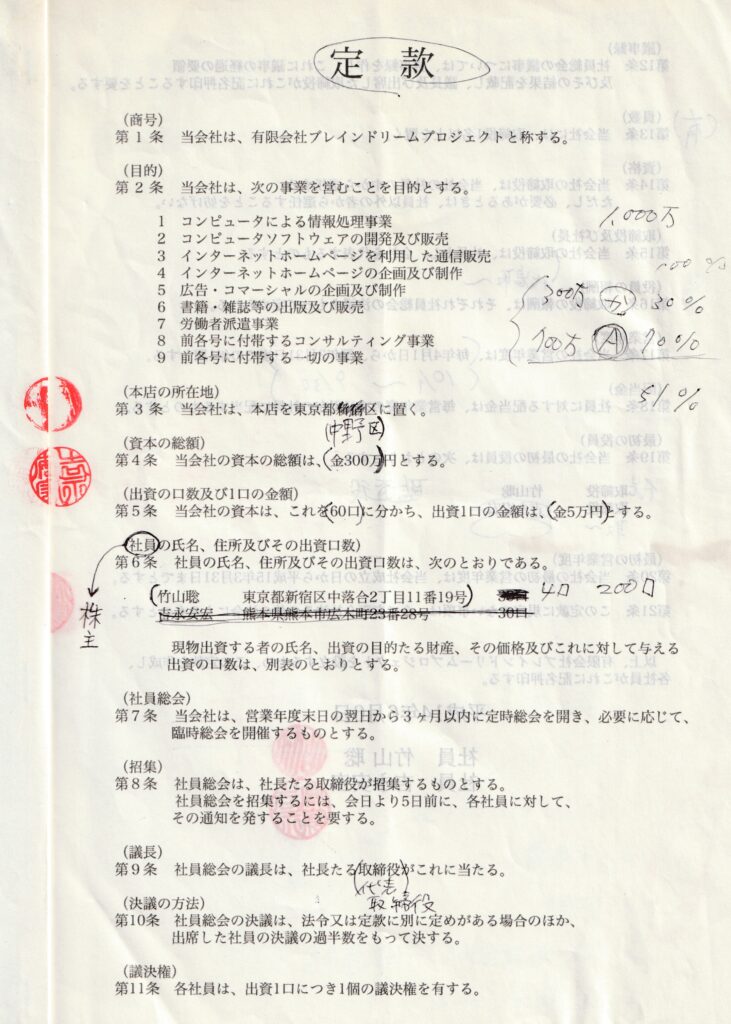 定 款
(商号)
第1条 当会社は、有限会社ブレインドリームプロジェクトと称する。
(目的)
第2条 当会社は、次の事業を営むことを目的とする。
1 コンピュータによる情報処理事業
1,000万
2 コンピュータソフトウェアの開発及び販売
3 インターネットホームページを利用した通信販売
4 インターネットホームページの企画及び制作
100%
5 広告・コマーシャルの企画及び制作
300万 30%
6 書籍・雑誌等の出版及び販売
7 労働者派遣事業
8 前各号に付帯するコンサルティング事業
700万 A 70%
9 前各号に付帯する一切の事業
51%
(本店の所在地)
第3条 当会社は、本店を東京都新宿区に置く。
(中野区)
(資本の総額)
第4条 当会社の資本の総額は、(金300万円とする。
(出資の口数及び1口の金額)
第5条 当会社の資本は、これを(60口)に分かち、出資1口の金額は、(金5万円)とする。
(社員の氏名、住所及びその出資口数)
第6条 社員の氏名、住所及びその出資口数は、次のとおりである。
(竹山聡 東京都新宿区中落合2丁目11番19号) 30口 4口 200口
吉永安宏 熊本県熊本市広木町23番28号 30口
株主
現物出資する者の氏名、出資の目的たる財産、その価格及びこれに対して与える
出資の口数は、別表のとおりとする。
(社員総会)
第7条 当会社は、営業年度末日の翌日から3ヶ月以内に定時総会を開き、必要に応じて、
臨時総会を開催するものとする。
(招集)
第8条 社員総会は、社長たる取締役が招集するものとする。
社員総会を招集するには、会日より5日前に、各社員に対して、
その通知を発することを要する。
(議長)
第9条 社員総会の議長は、社長たる(取締役)がこれに当たる。
(代表)
取締役
(決議の方法)
第10条 社員総会の決議は、法令又は定款に別に定めがある場合のほか、
出席した社員の決議の過半数をもって決する。
(議決権)
第11条 各社員は、出資1口につき1個の議決権を有する。